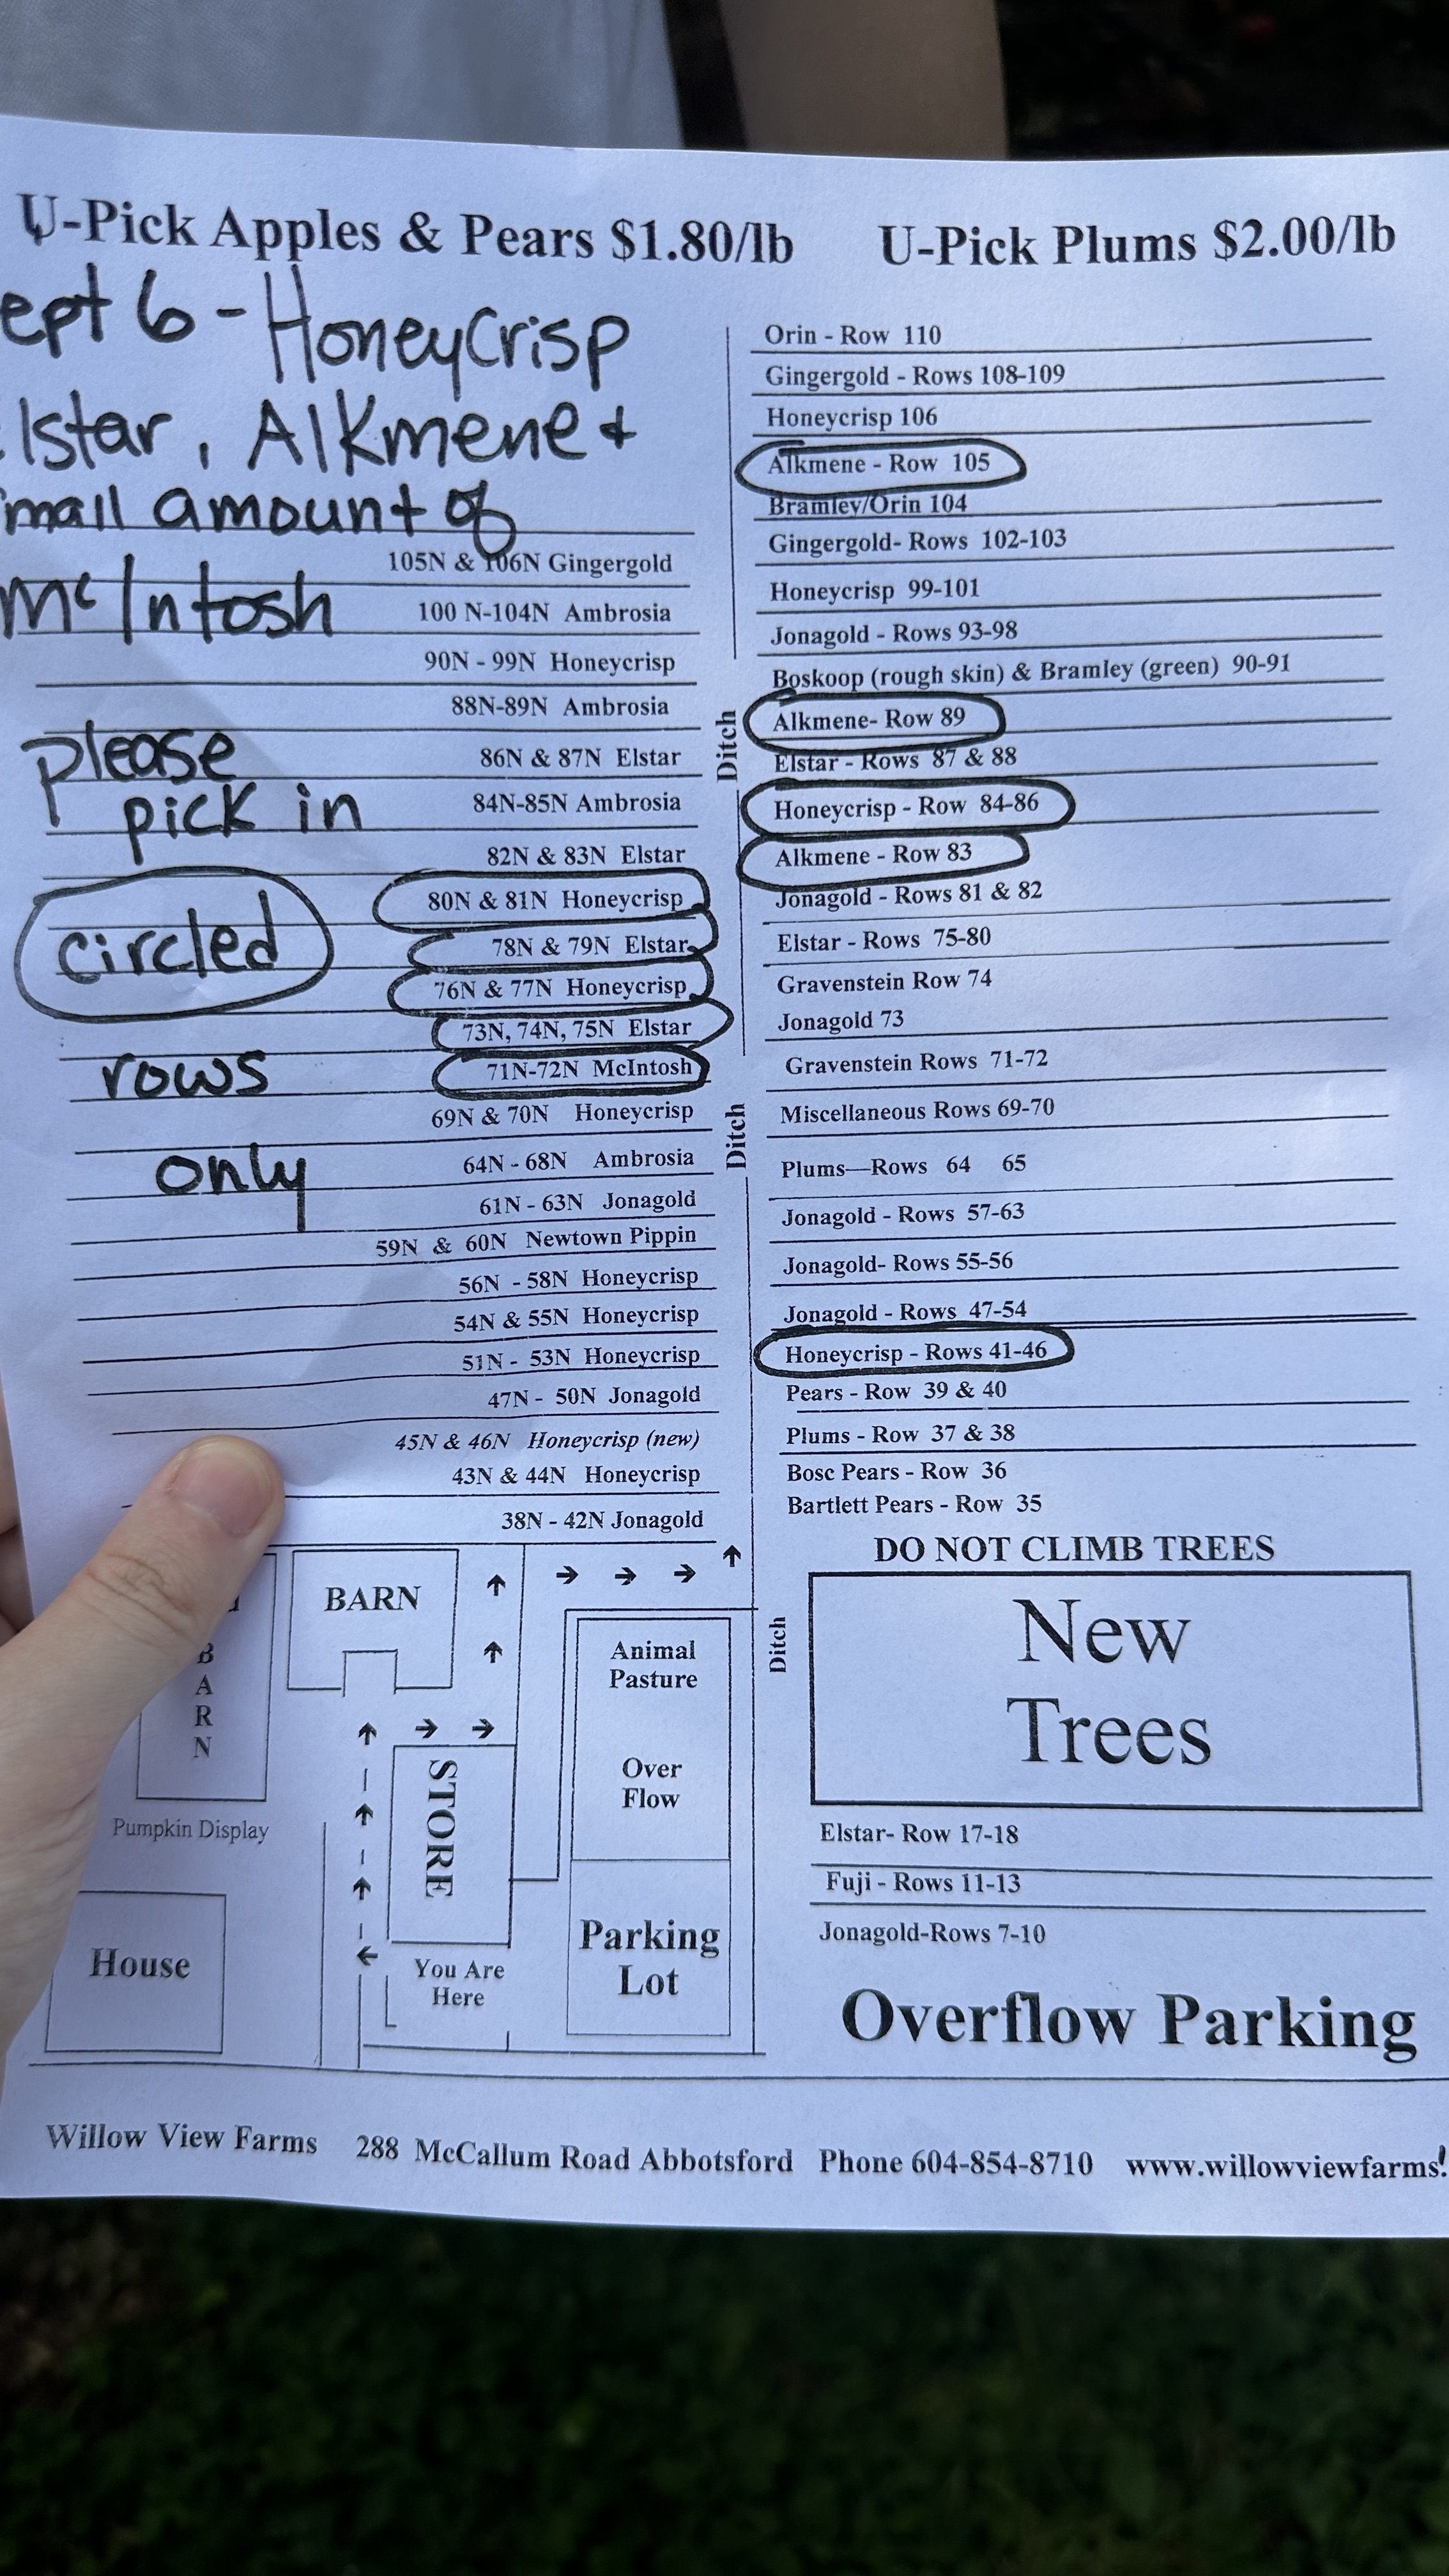 U-Pick Apples & Pears $1.80/lb
U-Pick Plums $2.00/lb
ept 6 - HoneyCrisp
lstar, Alkmene +
mall amount of
McIntosh
please
pick in
circled
rows
only
105N & 106N Gingergold
100 N-104N Ambrosia
90N - 99N Honeycrisp
88N-89N Ambrosia
86N & 87N Elstar
84N-85N Ambrosia
82N & 83N Elstar
80N & 81N Honeycrisp
78N & 79N Elstar
76N & 77N Honeycrisp
73N, 74N, 75N Elstar
71N-72N McIntosh
69N & 70N Honeycrisp
64N - 68N Ambrosia
61N - 63N Jonagold
59N & 60N Newtown Pippin
56N - 58N Honeycrisp
54N & 55N Honeycrisp
51N - 53N Honeycrisp
47N - 50N Jonagold
45N & 46N Honeycrisp (new)
43N & 44N Honeycrisp
38N - 42N Jonagold
Ditch
Ditch
Orin - Row 110
Gingergold - Rows 108-109
Honeycrisp 106
Alkmene - Row 105
Bramley/Orin 104
Gingergold- Rows 102-103
Honeycrisp 99-101
Jonagold - Rows 93-98
Boskoop (rough skin) & Bramley (green) 90-91
Alkmene- Row 89
Elstar - Rows 87 & 88
Honeycrisp - Row 84-86
Alkmene - Row 83
Jonagold - Rows 81 & 82
Elstar - Rows 75-80
Gravenstein Row 74
Jonagold 73
Gravenstein Rows 71-72
Miscellaneous Rows 69-70
Plums—Rows 64 65
Jonagold - Rows 57-63
Jonagold- Rows 55-56
Jonagold - Rows 47-54
Honeycrisp - Rows 41-46
Pears - Row 39 & 40
Plums - Row 37 & 38
Bosc Pears - Row 36
Bartlett Pears - Row 35
DO NOT CLIMB TREES
New
Trees
Elstar- Row 17-18
Fuji - Rows 11-13
Jonagold-Rows 7-10
Overflow Parking
BARN
BARN
Pumpkin Display
House
STORE
You Are
Here
Animal
Pasture
Over
Flow
Parking
Lot
Ditch
Willow View Farms 288 McCallum Road Abbotsford Phone 604-854-8710 www.willowviewfarms